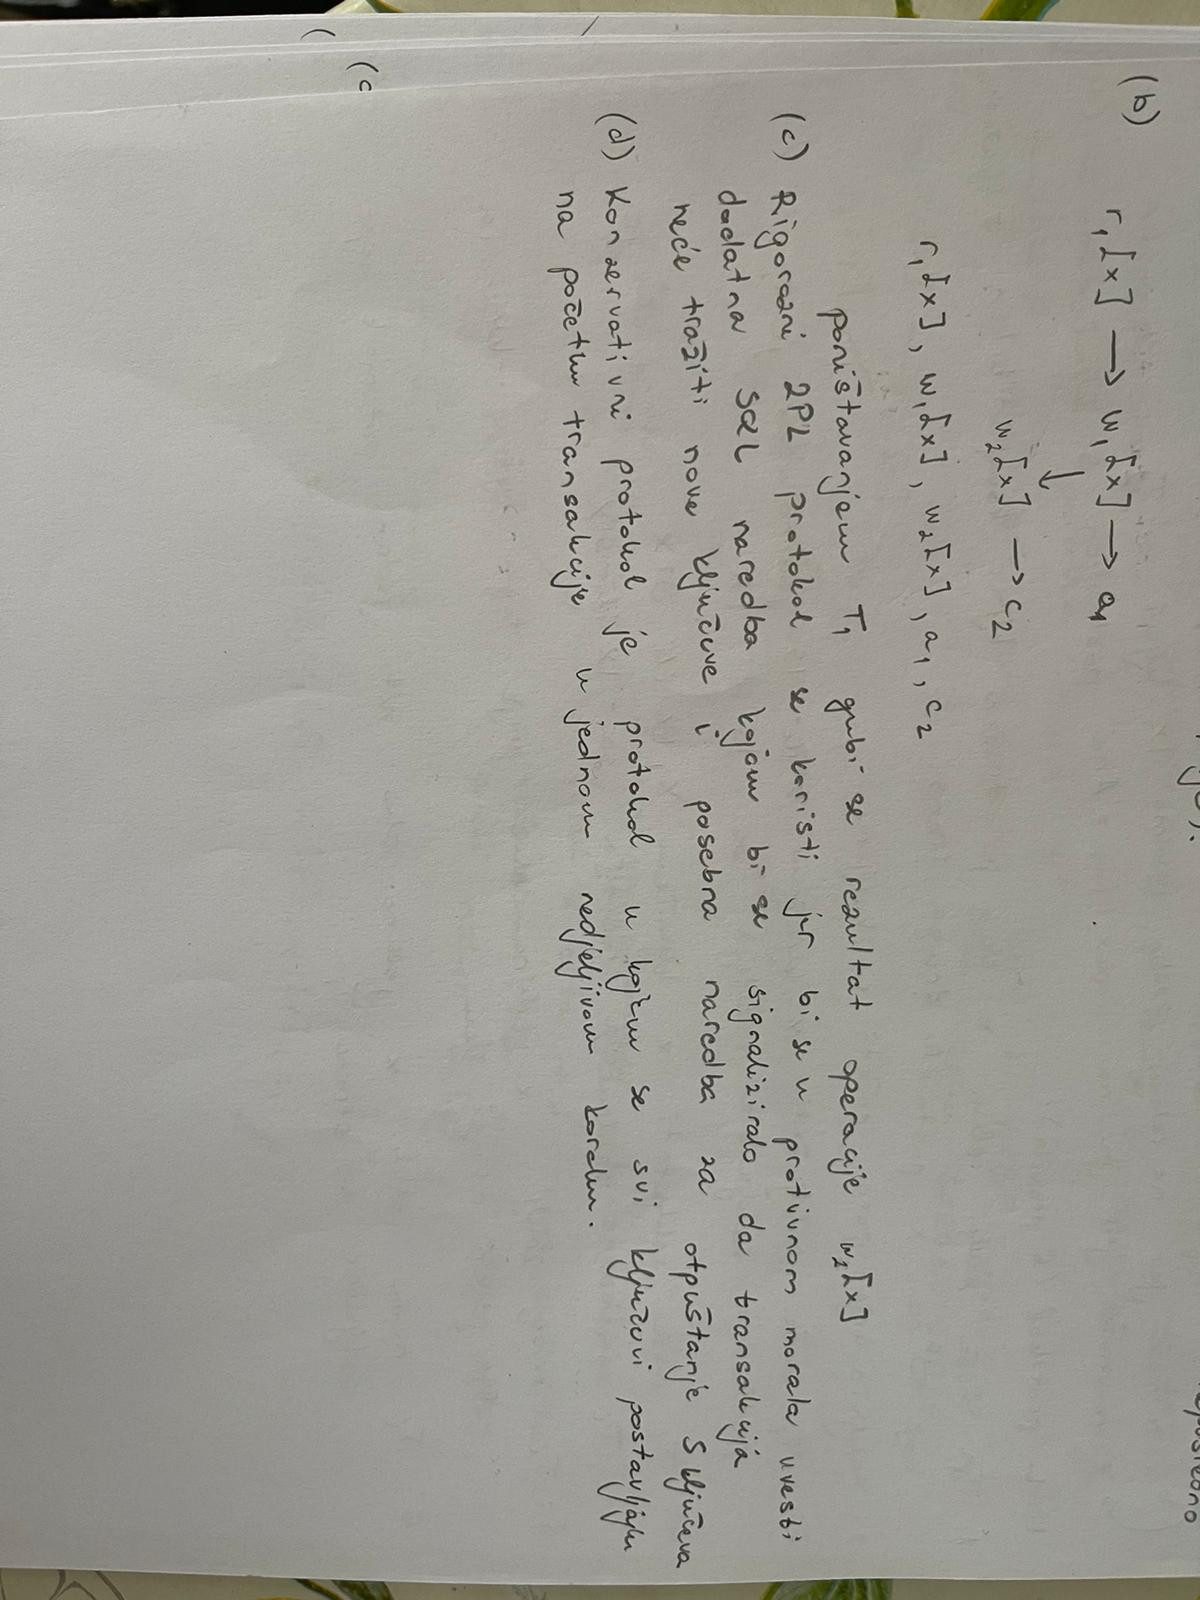 (b) r₁[x] → w₁[x] → a₁
↓
w₂[x] → c₂
r₁[x], w₁[x], w₂[x], a₁, c₂
poništavanjem T₁ gubi se rezultat operacije w₂[x]
(c) Rigorozni 2PL protokol se koristi jer bi se u protivnom morala uvesti
dodatna SQL naredba kojom bi se signaliziralo da transakcija
neće tražiti nove ključeve i posebna naredba za otpuštanje S ključeva
(d) Konzervativni protokol je protokol u kojem se svi ključevi postavljaju
na početku transakcije u jednom nedjeljivom koraku.
(c
(